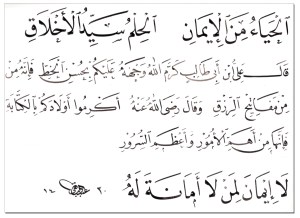 الحَيَاءُ مِنَ الإِيمَانِ الحِلْمُ سَيِّدُ الأَخْلَاقِ
قال علي بن أبي طالب كرم الله وجهه عليكم بحسن الخط فإنه من
من مفاتيح الرزق وقال رضي الله عنه أكرموا أولادكم بالكتابة
فإنها من أهم الأمور وأعظم السرور
لَا إِيمَانَ لِمَنْ لَا أَمَانَةَ لَهُ